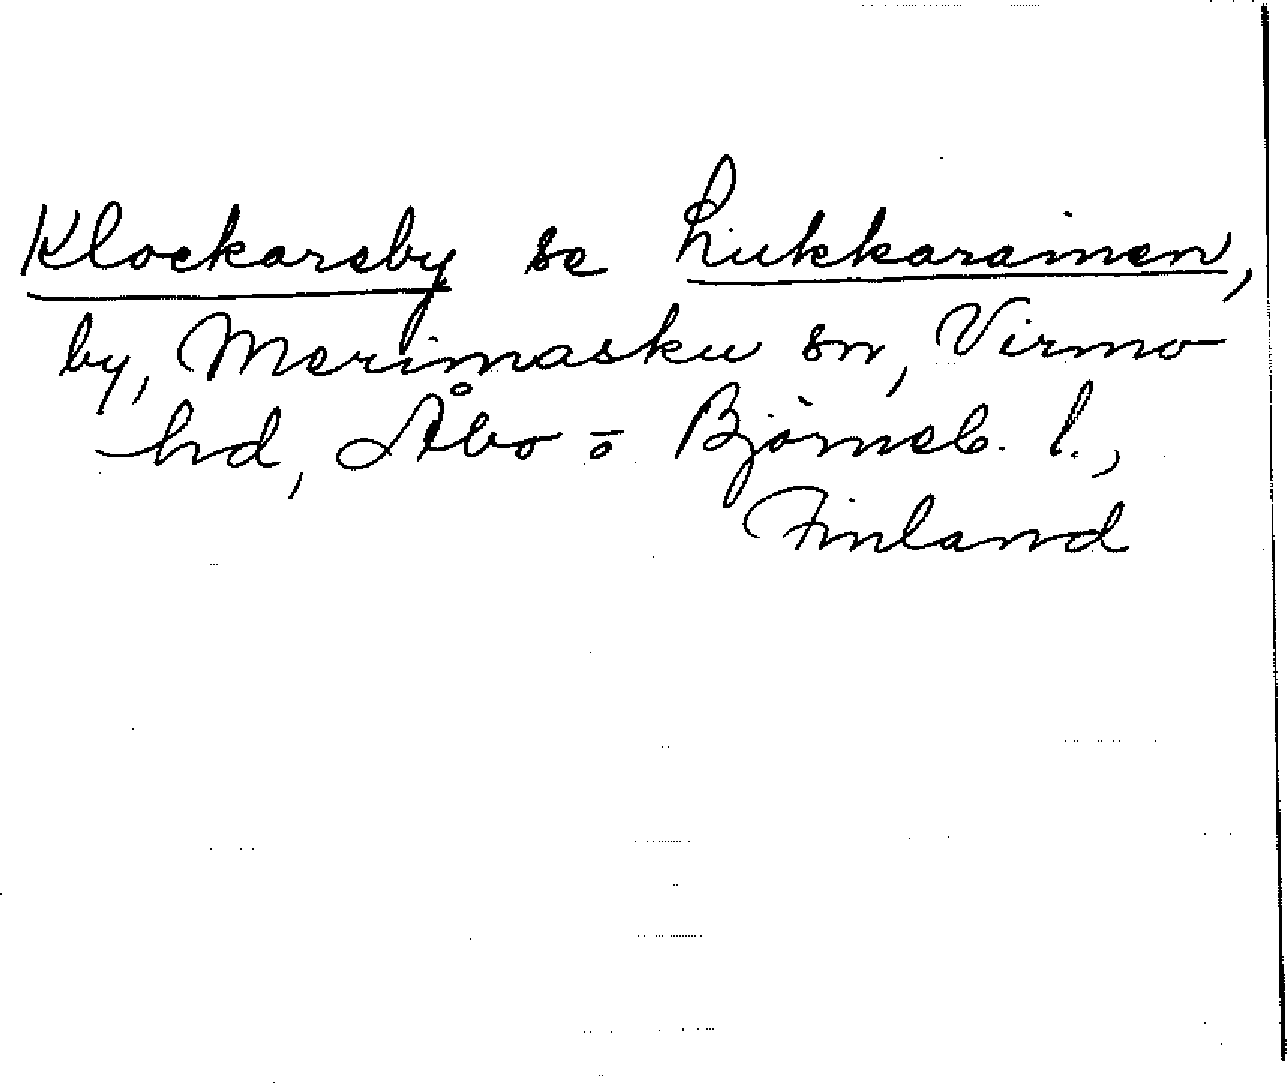 Klockarsby se Lukkarainen,
by, Merimasku sn, Virmo
hd, Åbo o Björneb. l.,
Finland